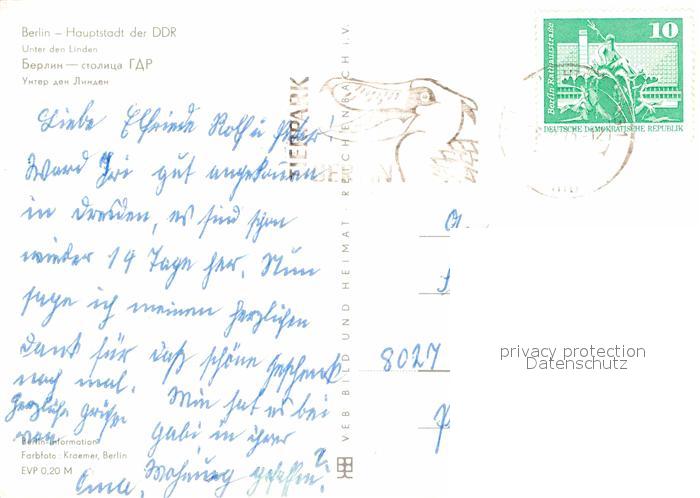 Berlin – Hauptstadt der DDR
Unter den Linden
Берлин — столица ГДР
Унтер ден Линден
Liebe Elfriede Rolf u
gut angekommen
in Dresden, es sind schon
wieder 14 Tage her. Nun
sage ich meinen herzlichen
Dank für daß schöne Geschenk
noch mal.
Herzliche Grüße
von
Oma.
Wie hat es bei
Gabi in ihrer
Wohnung gefallen?
Berlin-Information
Farbfoto: Kraemer, Berlin
EVP 0,20 M
VEB BILD UND HEIMAT REICHENBACH I.V.
TIERPARK
BERLIN
Berlin, Rathausstraße
10
DEUTSCHE DEMOKRATISCHE REPUBLIK
8027
privacy protection
Datenschutz